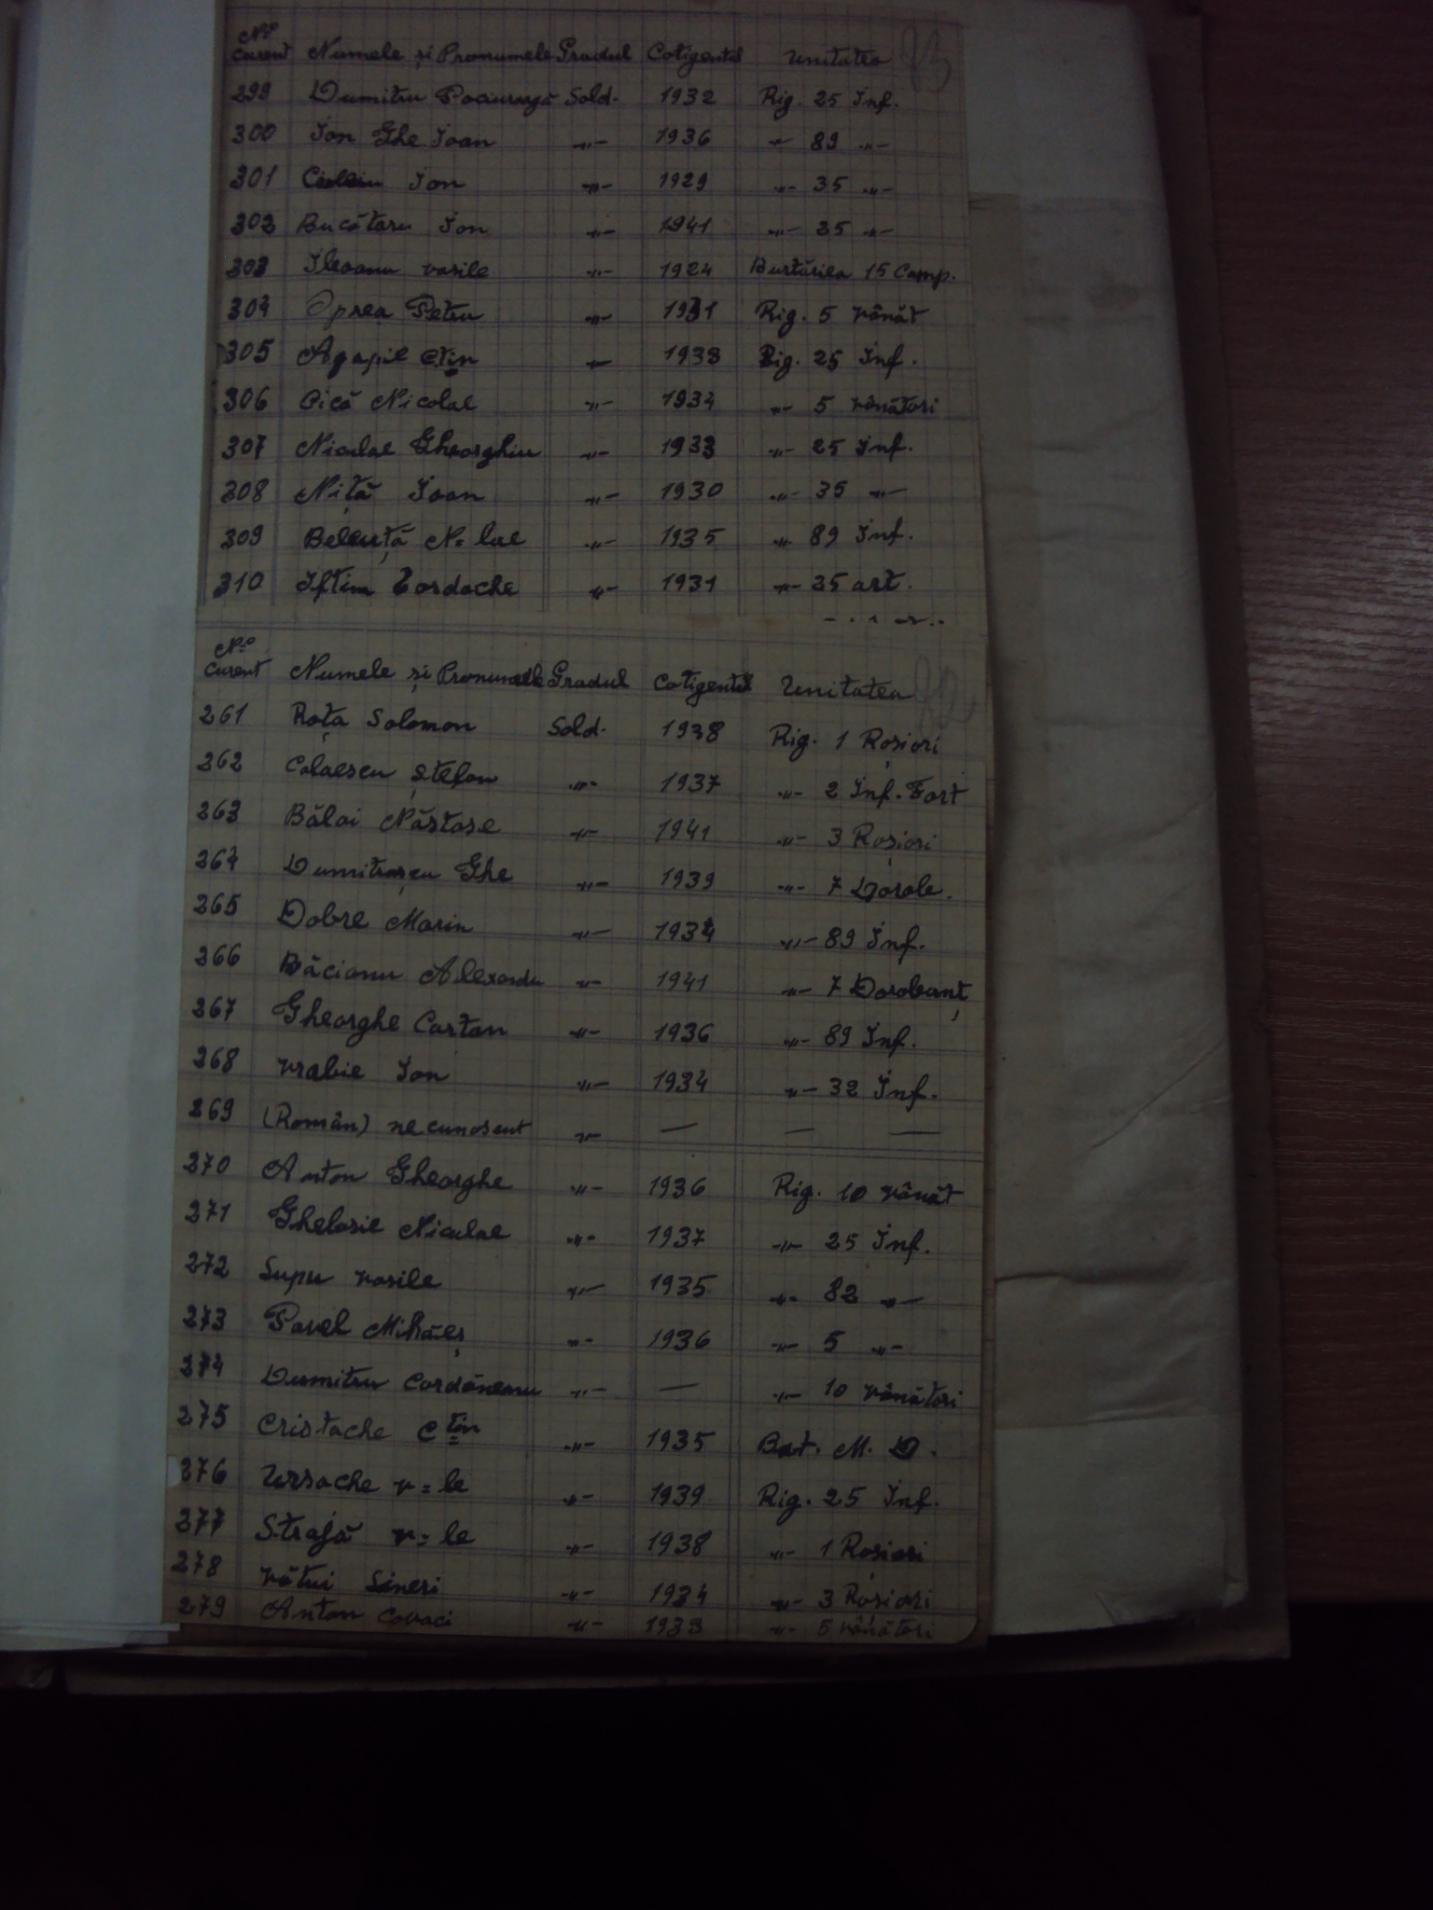 93
No curent Numele și Pronumele Gradul Cotigentul Unitatea
299 Dumitru Sold. 1932 Rig. 25 Inf.
300 Ion Ghe Ioan -"- 1936 -"- 89 -"-
301 Ion -"- 1929 -"- 35 -"-
302 Bucătaru Ion -"- 1941 -"- 35 -"-
303 Ileoanu vasile -"- 1924 15 Comp.
304 Oprea Petru -"- 1931 Rig. 5 Vânăt
305 Agapie Ctin -"- 1933 Rig. 25 Inf.
306 Gică Nicolae -"- 1934 -"- 5 Vânători
307 Niculae Gheorghiu -"- 1933 -"- 25 Inf.
308 Niță Ioan -"- 1930 -"- 35 -"-
309 Beleuță N=lae -"- 1935 -"- 89 Inf.
310 Iftim Iordache -"- 1931 -"- 25 art.
No curent Numele și Pronumele Gradul Cotigentul Unitatea
261 Roța Solomon Sold. 1938 Rig. 1 Roșiori
262 Colaescu Ștefan -"- 1937 -"- 2 Inf. Fort
263 Bălai Năstase -"- 1941 -"- 3 Roșiori
264 Dumitrașcu Ghe -"- 1939 -"- 7
265 Dobre Marin -"- 1934 -"- 89 Inf.
266 Băcianu Alexandu -"- 1941 -"- 7 Dorobanț
267 Gheorghe Cartan -"- 1936 -"- 89 Inf.
268 Vrabie Ion -"- 1934 -"- 32 Inf.
269 (Român) necunoscut -"- — — —
270 Anton Gheorghe -"- 1936 Rig. 10 Vânăt
271 Ghelasie Niculae -"- 1937 -"- 25 Inf.
272 Supu Vasile -"- 1935 -"- 82 -"-
273 Pavel Mihăeș -"- 1936 -"- 5 -"-
274 Dumitru Cordăneanu -"- — -"- 10 Vânători
275 Cristache Ctin -"- 1935 Bat. M. D.
276 Ursache V=le -"- 1939 Rig. 25 Inf.
277 Strajă V=le -"- 1938 -"- 1 Roșiori
278 Vătui Sineri -"- 1934 -"- 3 Roșiori
279 Anton Covaci -"- 1933 -"- 5 Vânători